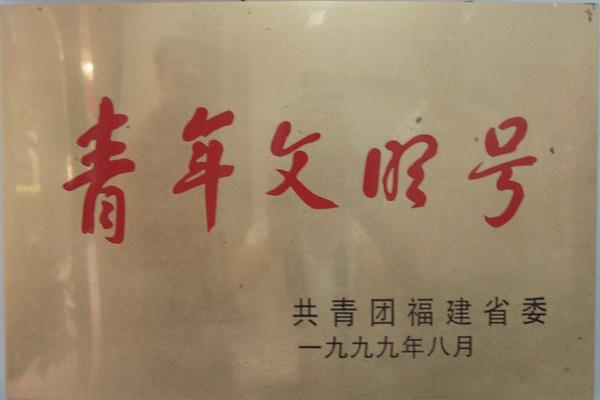 青年文明号
共青团福建省委
一九九九年八月